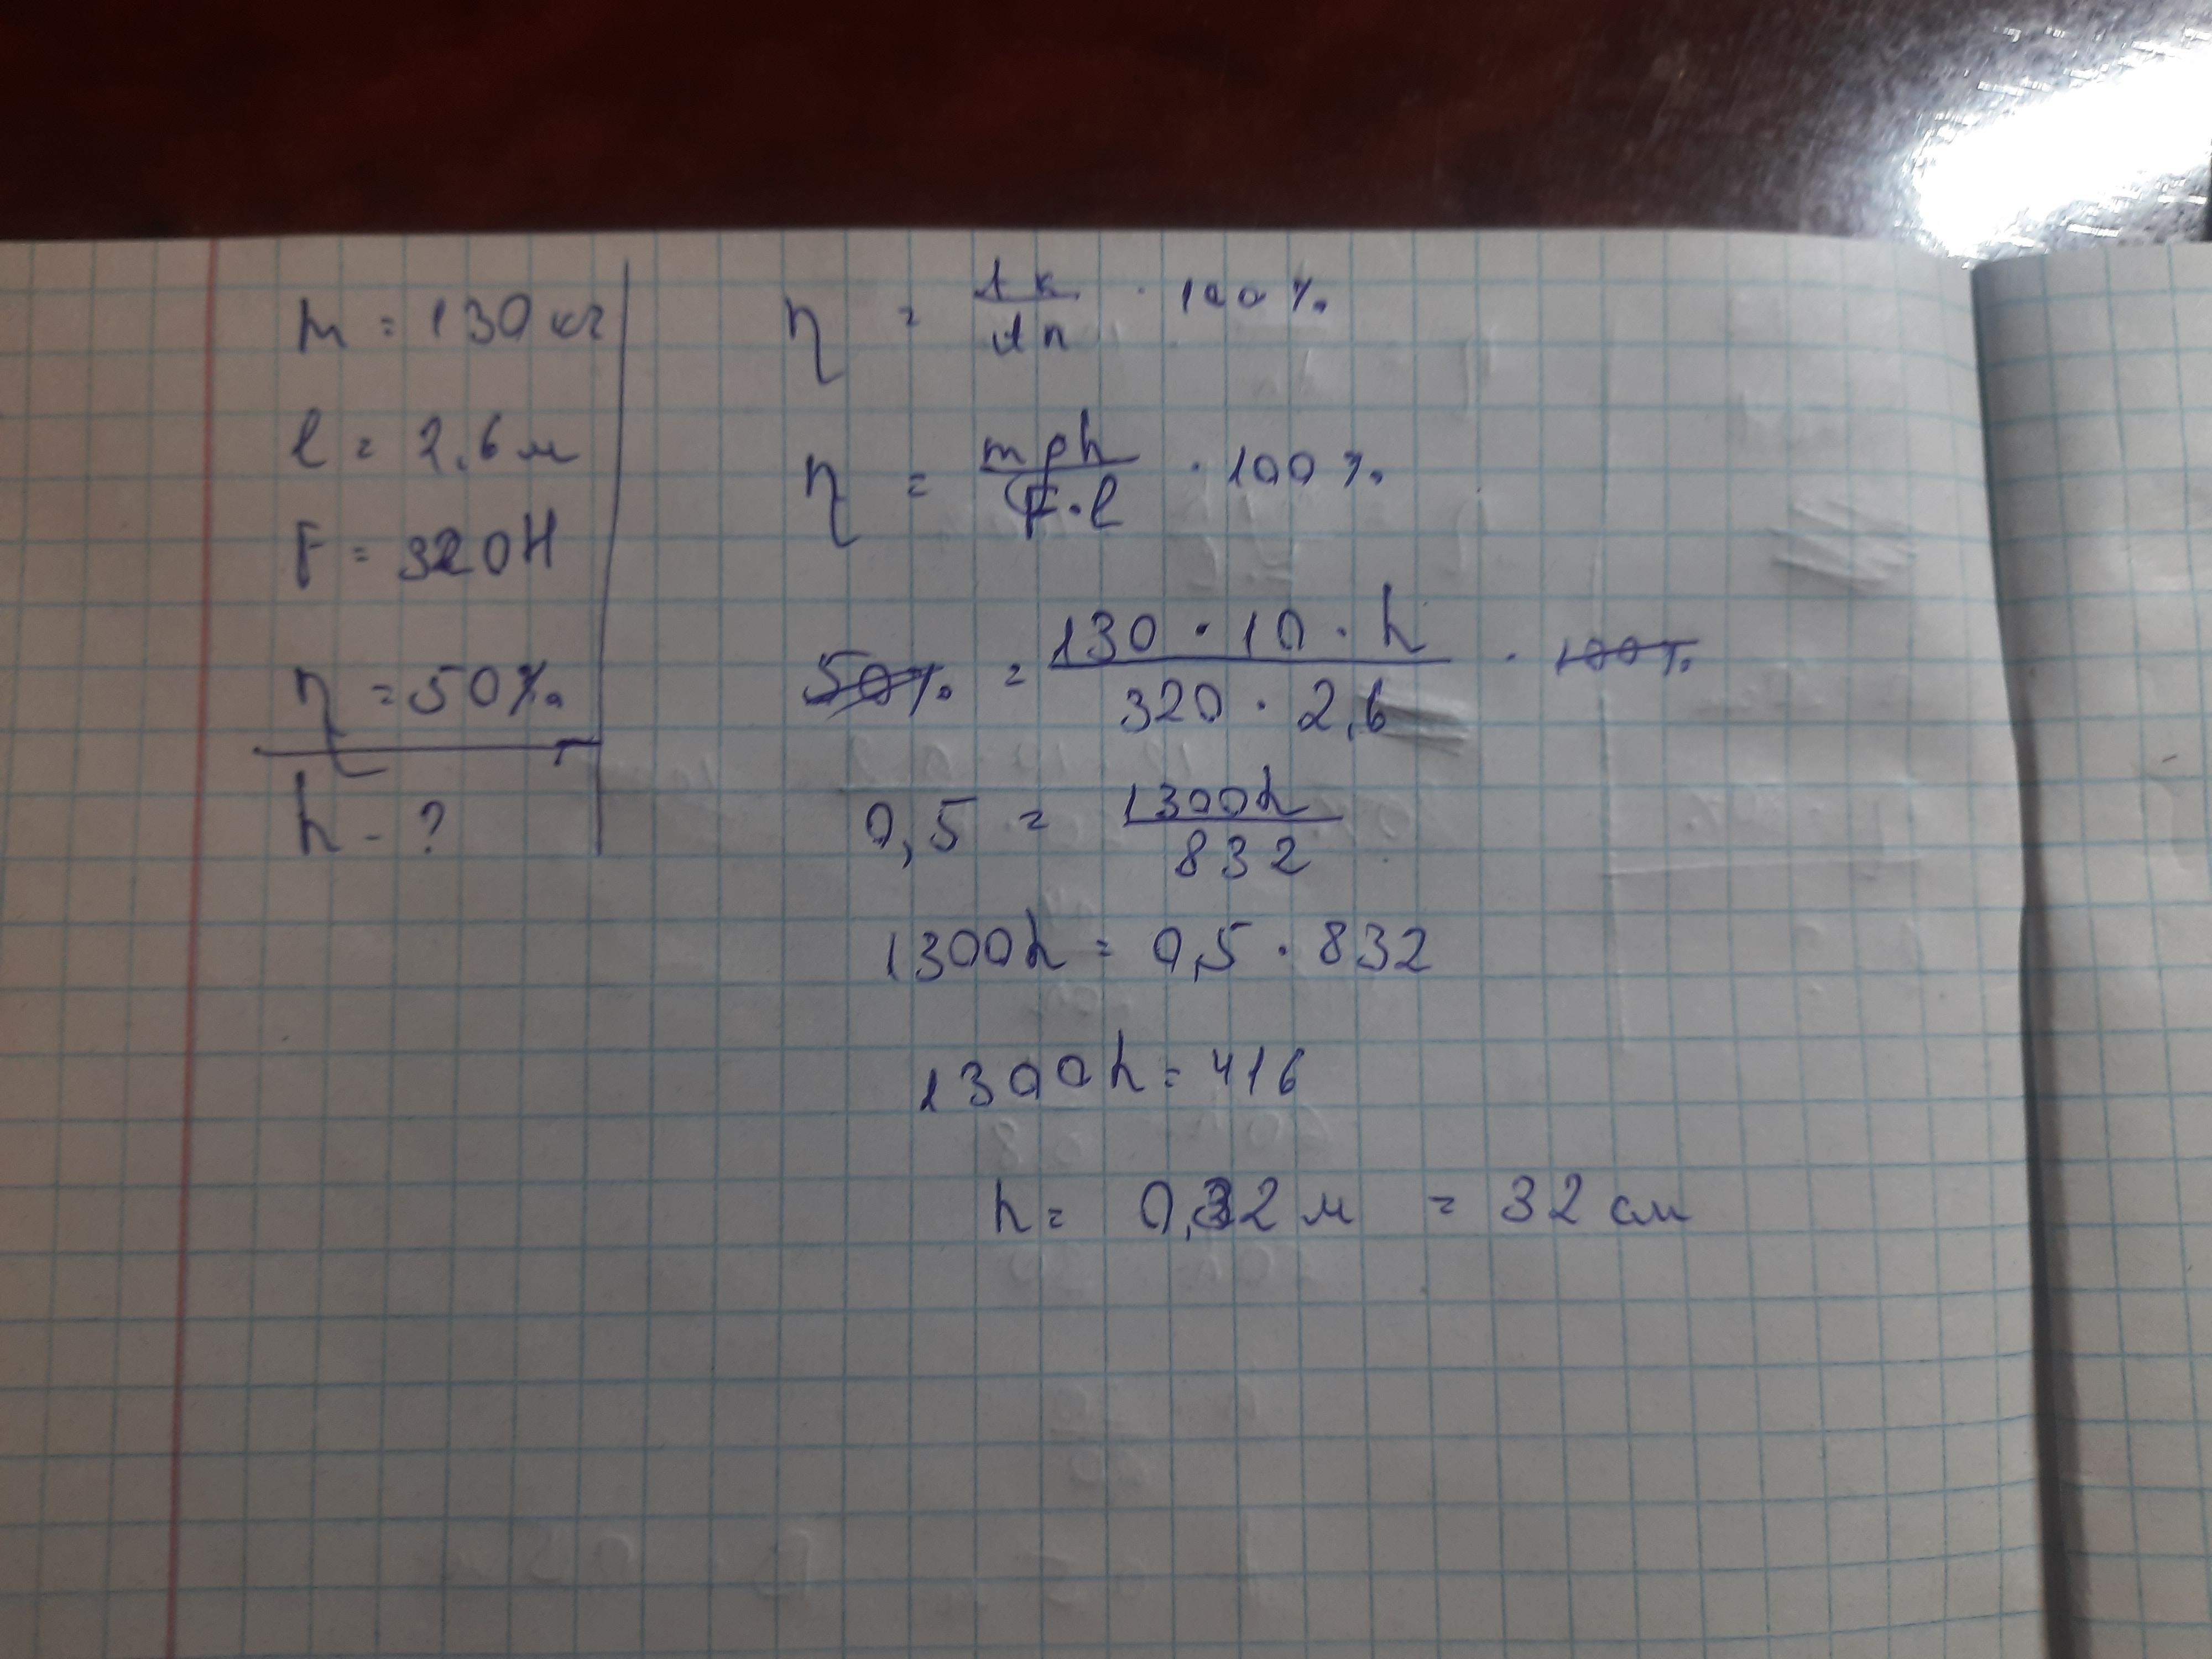 m = 130 кг
l = 2,6 м
F = 320 Н
η = 50%
h - ?
η = Aк/Aп · 100%
η = mgh/F·l · 100%
50% = 130 · 10 · h/320 · 2,6 · 100%
0,5 = 1300h/832
1300h = 0,5 · 832
1300h = 416
h = 0,32 м = 32 см